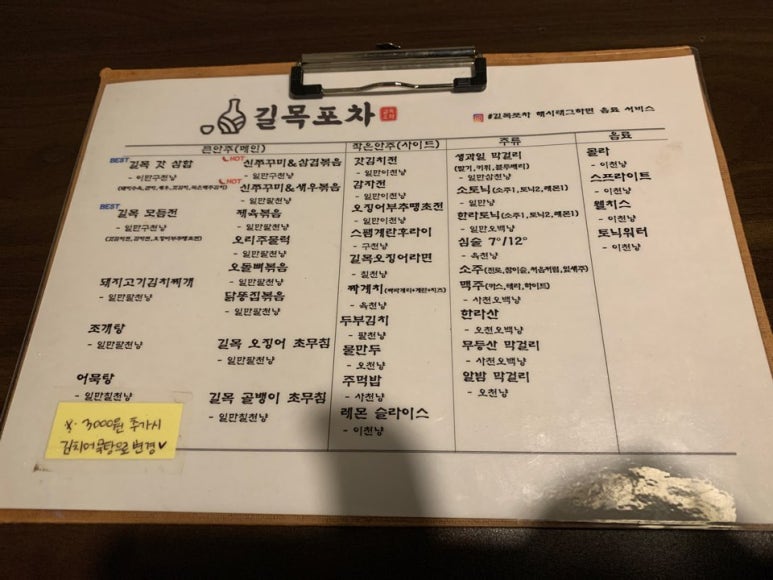 길목포차
#길목포차 해시태그하면 음료 서비스
큰안주(메인)
BEST
길목 갓 삼합
- 이만이천냥
BEST
길목 모듬전
- 일만구천냥
돼지고기김치찌개
- 일만팔천냥
조개탕
- 일만팔천냥
어묵탕
- 일만칠천냥
※. 3000원 추가시
김치어묵탕으로 변경✓
HOT
신쭈꾸미&삼겹볶음
- 일만구천냥
HOT
신쭈꾸미&새우볶음
- 일만팔천냥
제육볶음
- 일만팔천냥
오리주물럭
- 일만팔천냥
오돌뼈볶음
- 일만칠천냥
닭똥집볶음
- 일만칠천냥
길목 오징어 초무침
- 일만팔천냥
길목 골뱅이 초무침
- 일만칠천냥
작은안주(사이드)
갓김치전
- 일만이천냥
감자전
- 일만이천냥
오징어부추땡초전
- 일만이천냥
스팸계란후라이
- 구천냥
길목오징어라면
- 칠천냥
짜계치(짜파게티+계란+치즈)
- 육천냥
두부김치
- 팔천냥
물만두
- 오천냥
주먹밥
- 사천냥
레몬 슬라이스
- 이천냥
주류
생과일 막걸리
(딸기,키위,블루베리)
- 일만삼천냥
소토닉(소주1,토닉2,레몬1)
- 일만냥
한라토닉(소주1,토닉2,레몬1)
- 일만오백냥
심술 7°/12°
- 육천냥
소주(진로,참이슬,처음처럼,잎새주)
맥주(카스,테라,하이트)
- 사천오백냥
한라산
- 오천오백냥
무등산 막걸리
- 사천오백냥
알밤 막걸리
- 오천냥
음료
콜라
- 이천냥
스프라이트
- 이천냥
웰치스
- 이천냥
토닉워터
- 이천냥